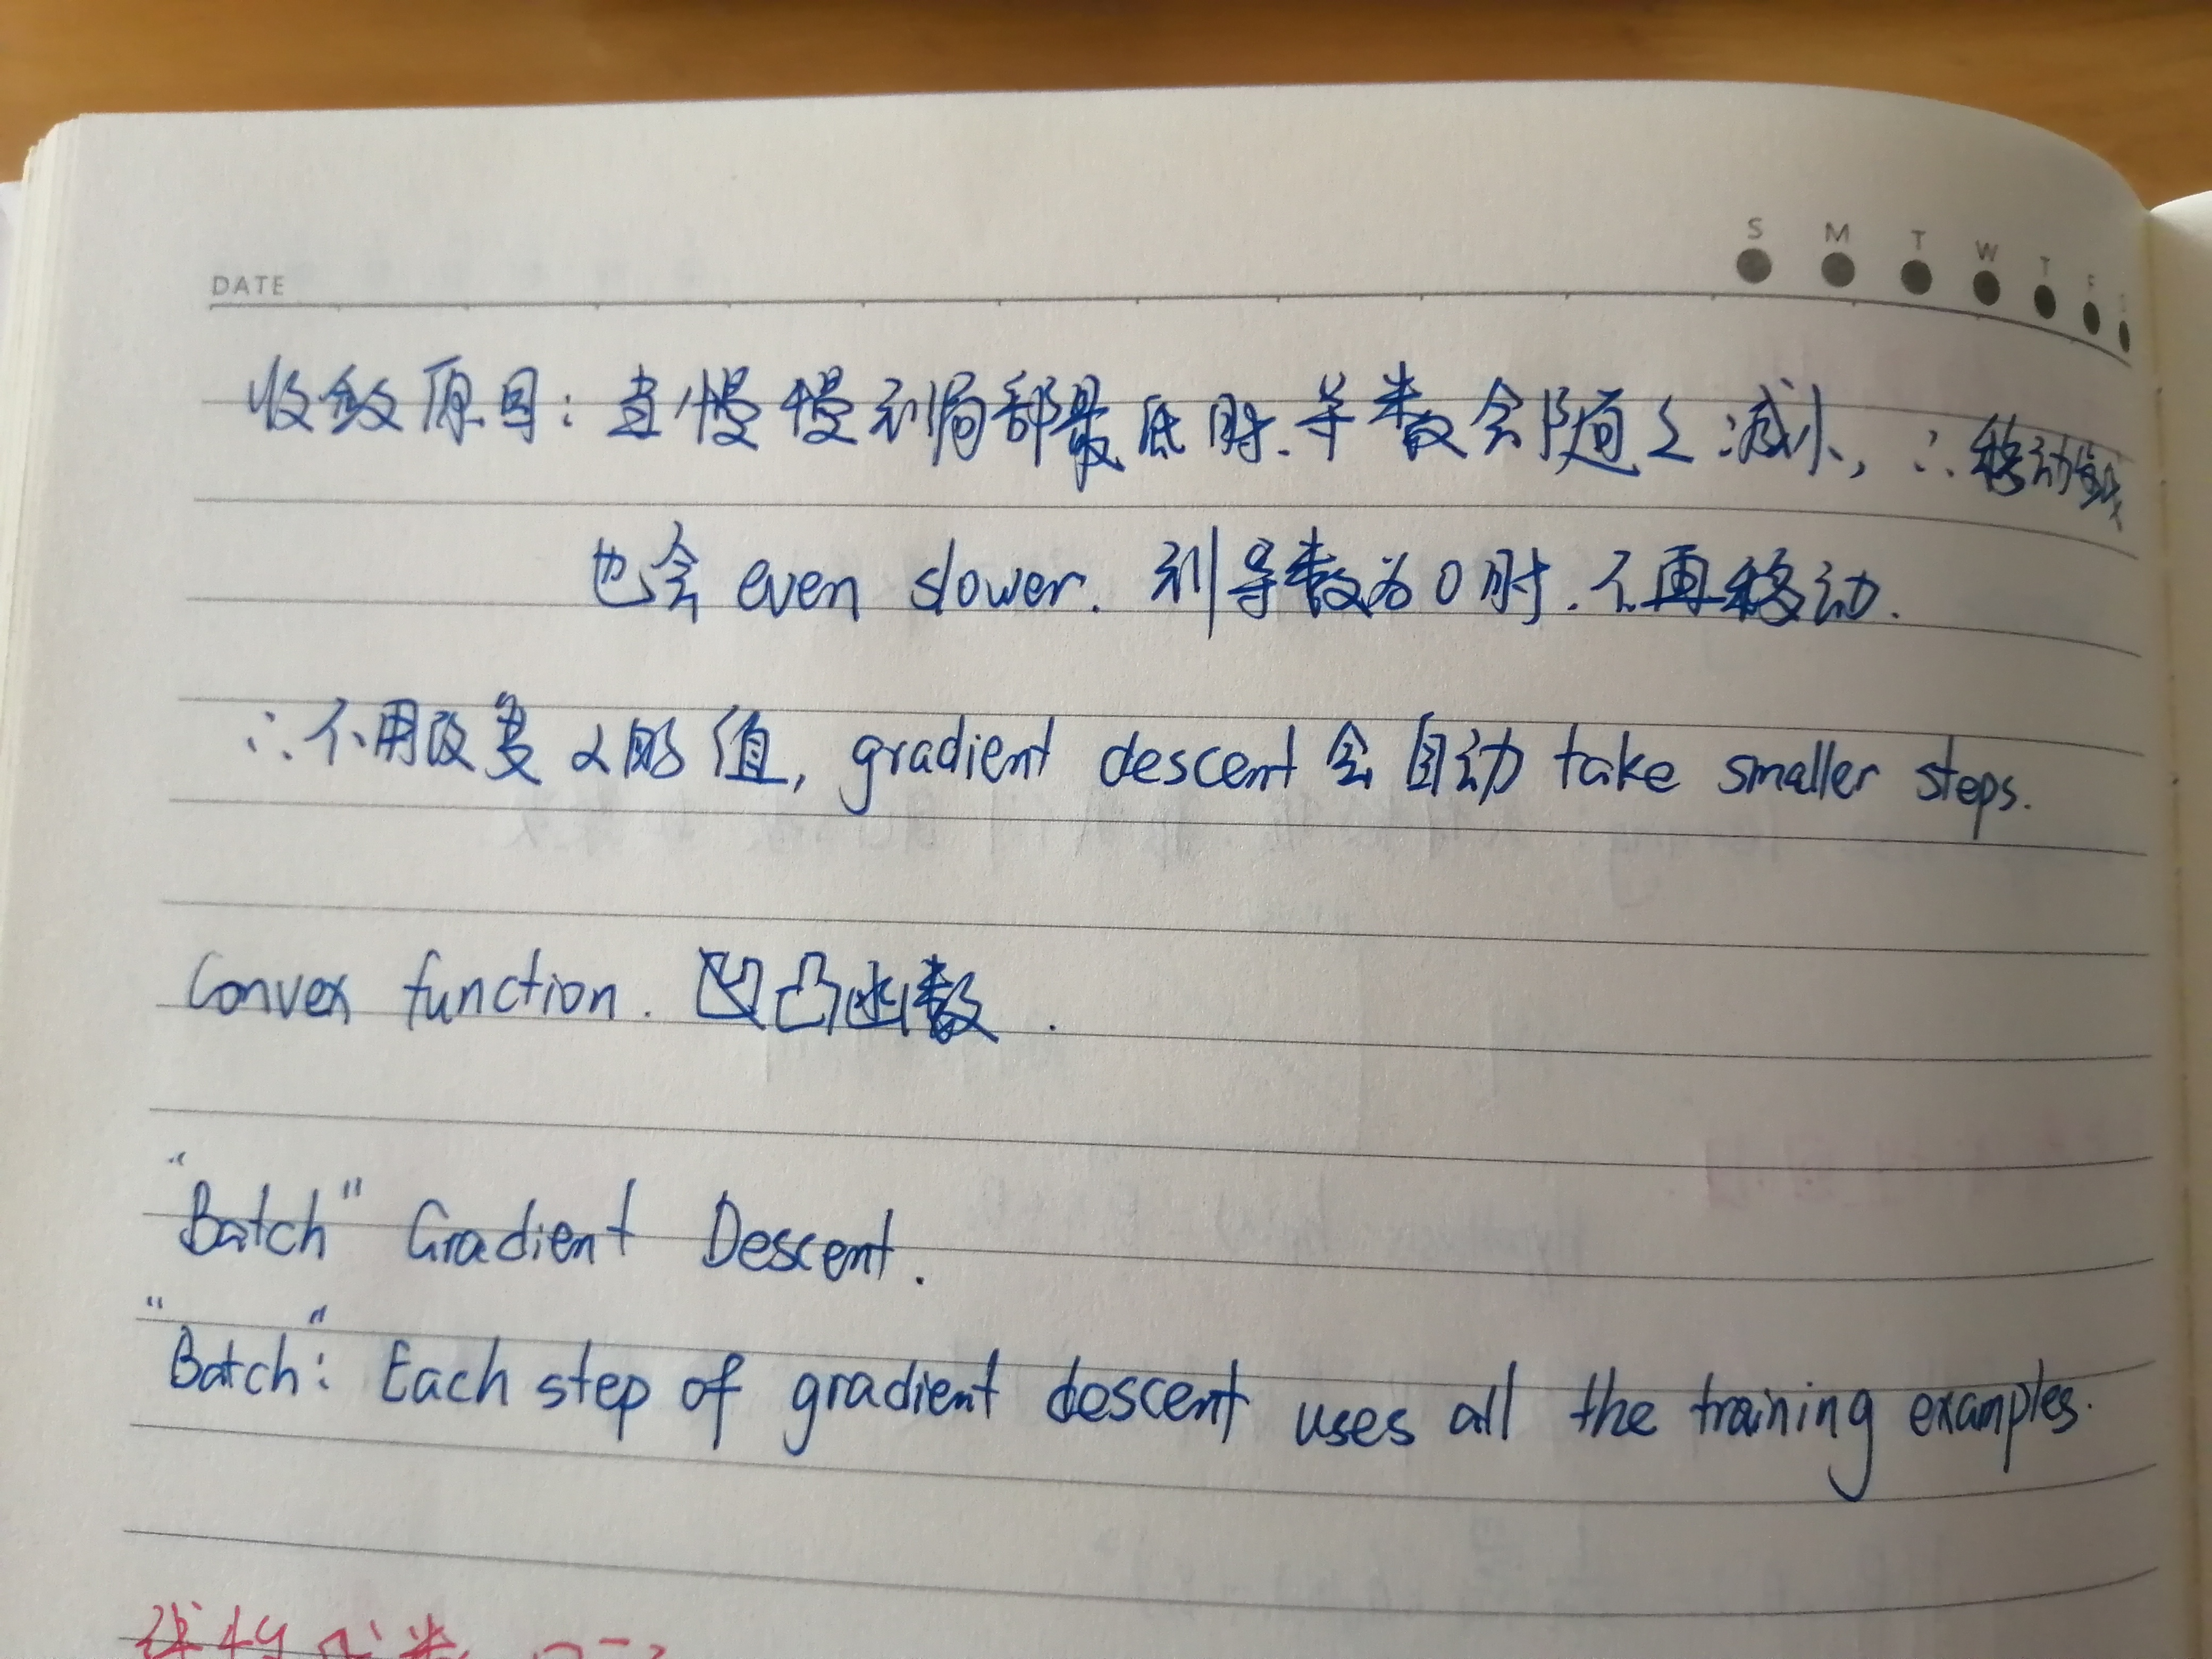 DATE
S M T W T F S
收敛原因：当慢慢到局部最低时.导数会随之减小, ∴移动
也会 even slower. 到导数为0时.不再移动.
∴不用改变α的值, gradient descent 会自动 take smaller steps.
Convex function. 凹凸函数.
"Batch" Gradient Descent.
"Batch": Each step of gradient descent uses all the training examples.